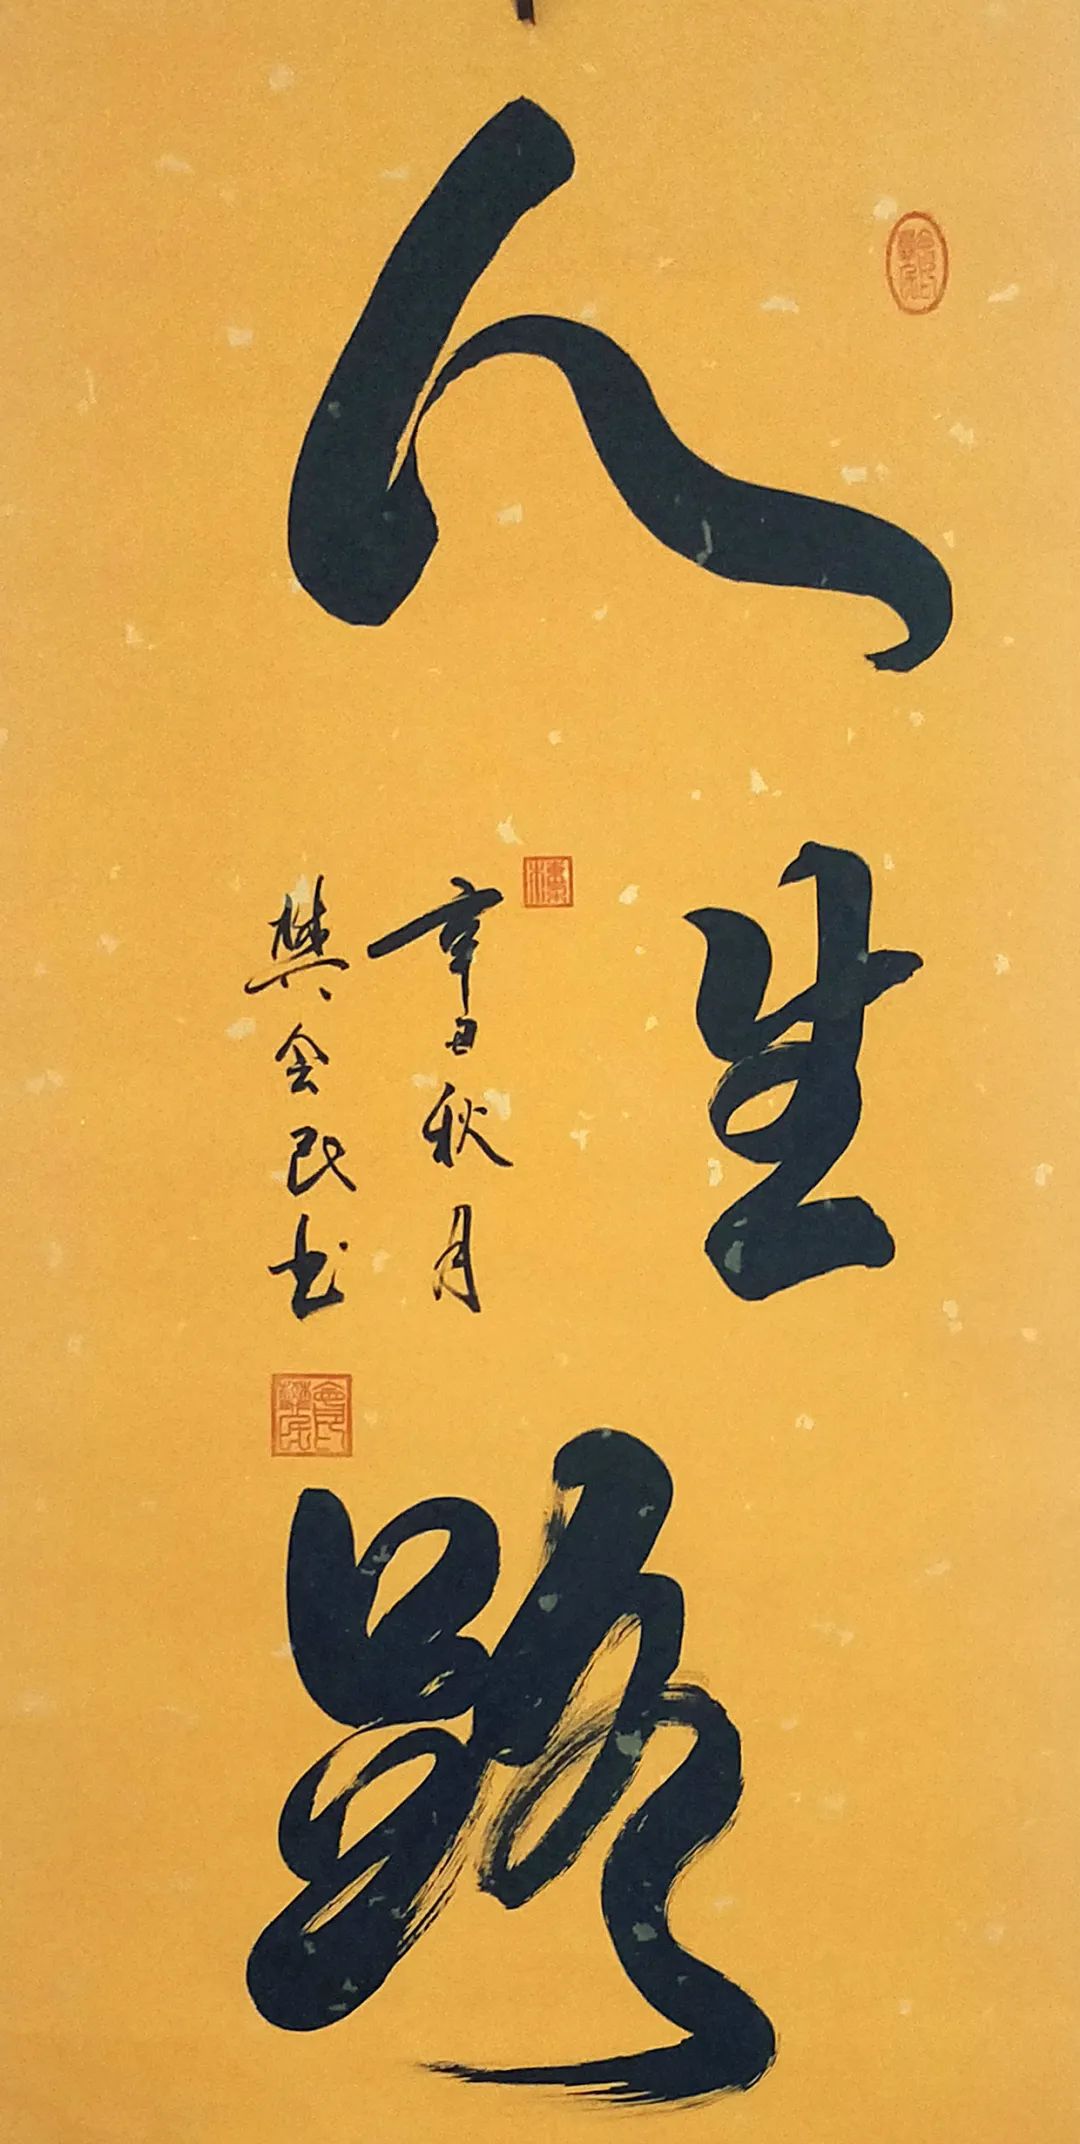 人生路
辛丑秋月
樊会民书